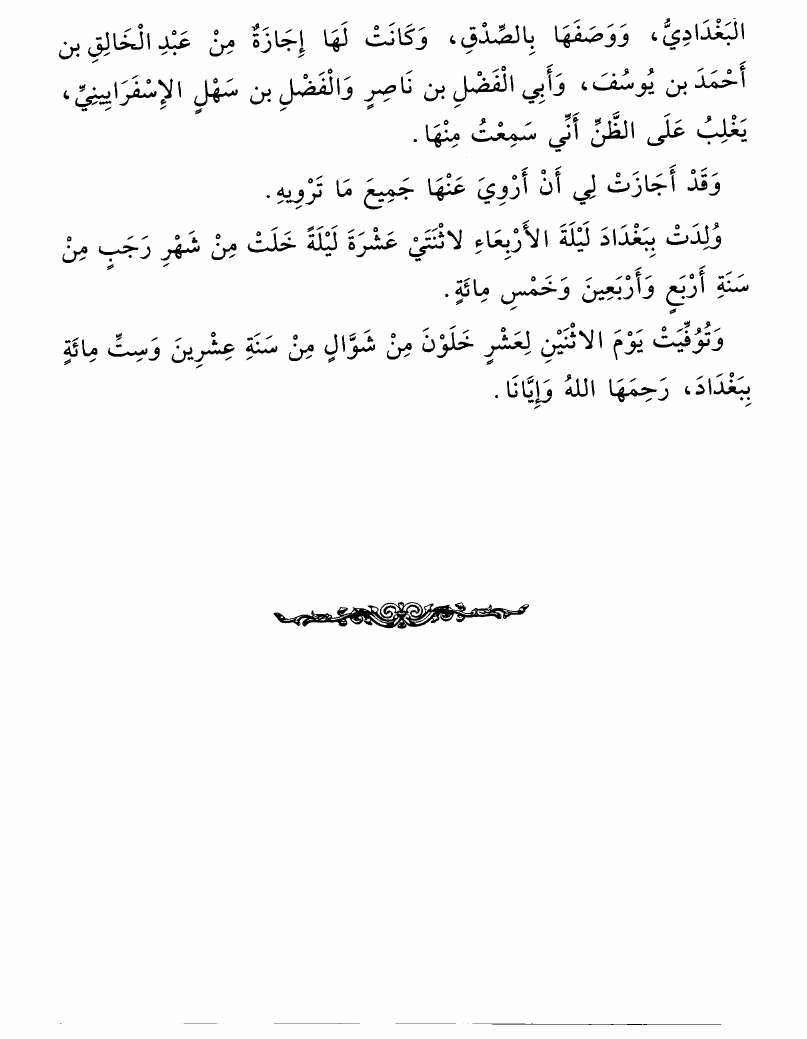 البَغْدَادِيُّ، وَوَصَفَهَا بِالصِّدْقِ، وَكَانَتْ لَهَا إِجَازَةٌ مِنْ عَبْدِ الْخَالِقِ بن
أَحْمَدَ بن يُوسُفَ، وَأَبِي الْفَضْلِ بن نَاصِرٍ وَالْفَضْلِ بن سَهْلٍ الإِسْفَرَايِينِيِّ،
يَغْلِبُ عَلَى الظَّنِّ أَنِّي سَمِعْتُ مِنْهَا.
وَقَدْ أَجَازَتْ لِي أَنْ أَرْوِيَ عَنْهَا جَمِيعَ مَا تَرْوِيهِ.
وُلِدَتْ بِبَغْدَادَ لَيْلَةَ الأَرْبِعَاءِ لاثْنَتَيْ عَشْرَةَ لَيْلَةً خَلَتْ مِنْ شَهْرِ رَجَبٍ مِنْ
سَنَةِ أَرْبَعٍ وَأَرْبَعِينَ وَخَمْسِ مِائَةٍ.
وَتُوُفِّيَتْ يَوْمَ الاثْنَيْنِ لِعَشْرٍ خَلَوْنَ مِنْ شَوَّالٍ مِنْ سَنَةِ عِشْرِينَ وَسِتِّ مِائَةٍ
بِبَغْدَادَ، رَحِمَهَا اللهُ وَإِيَّانَا.